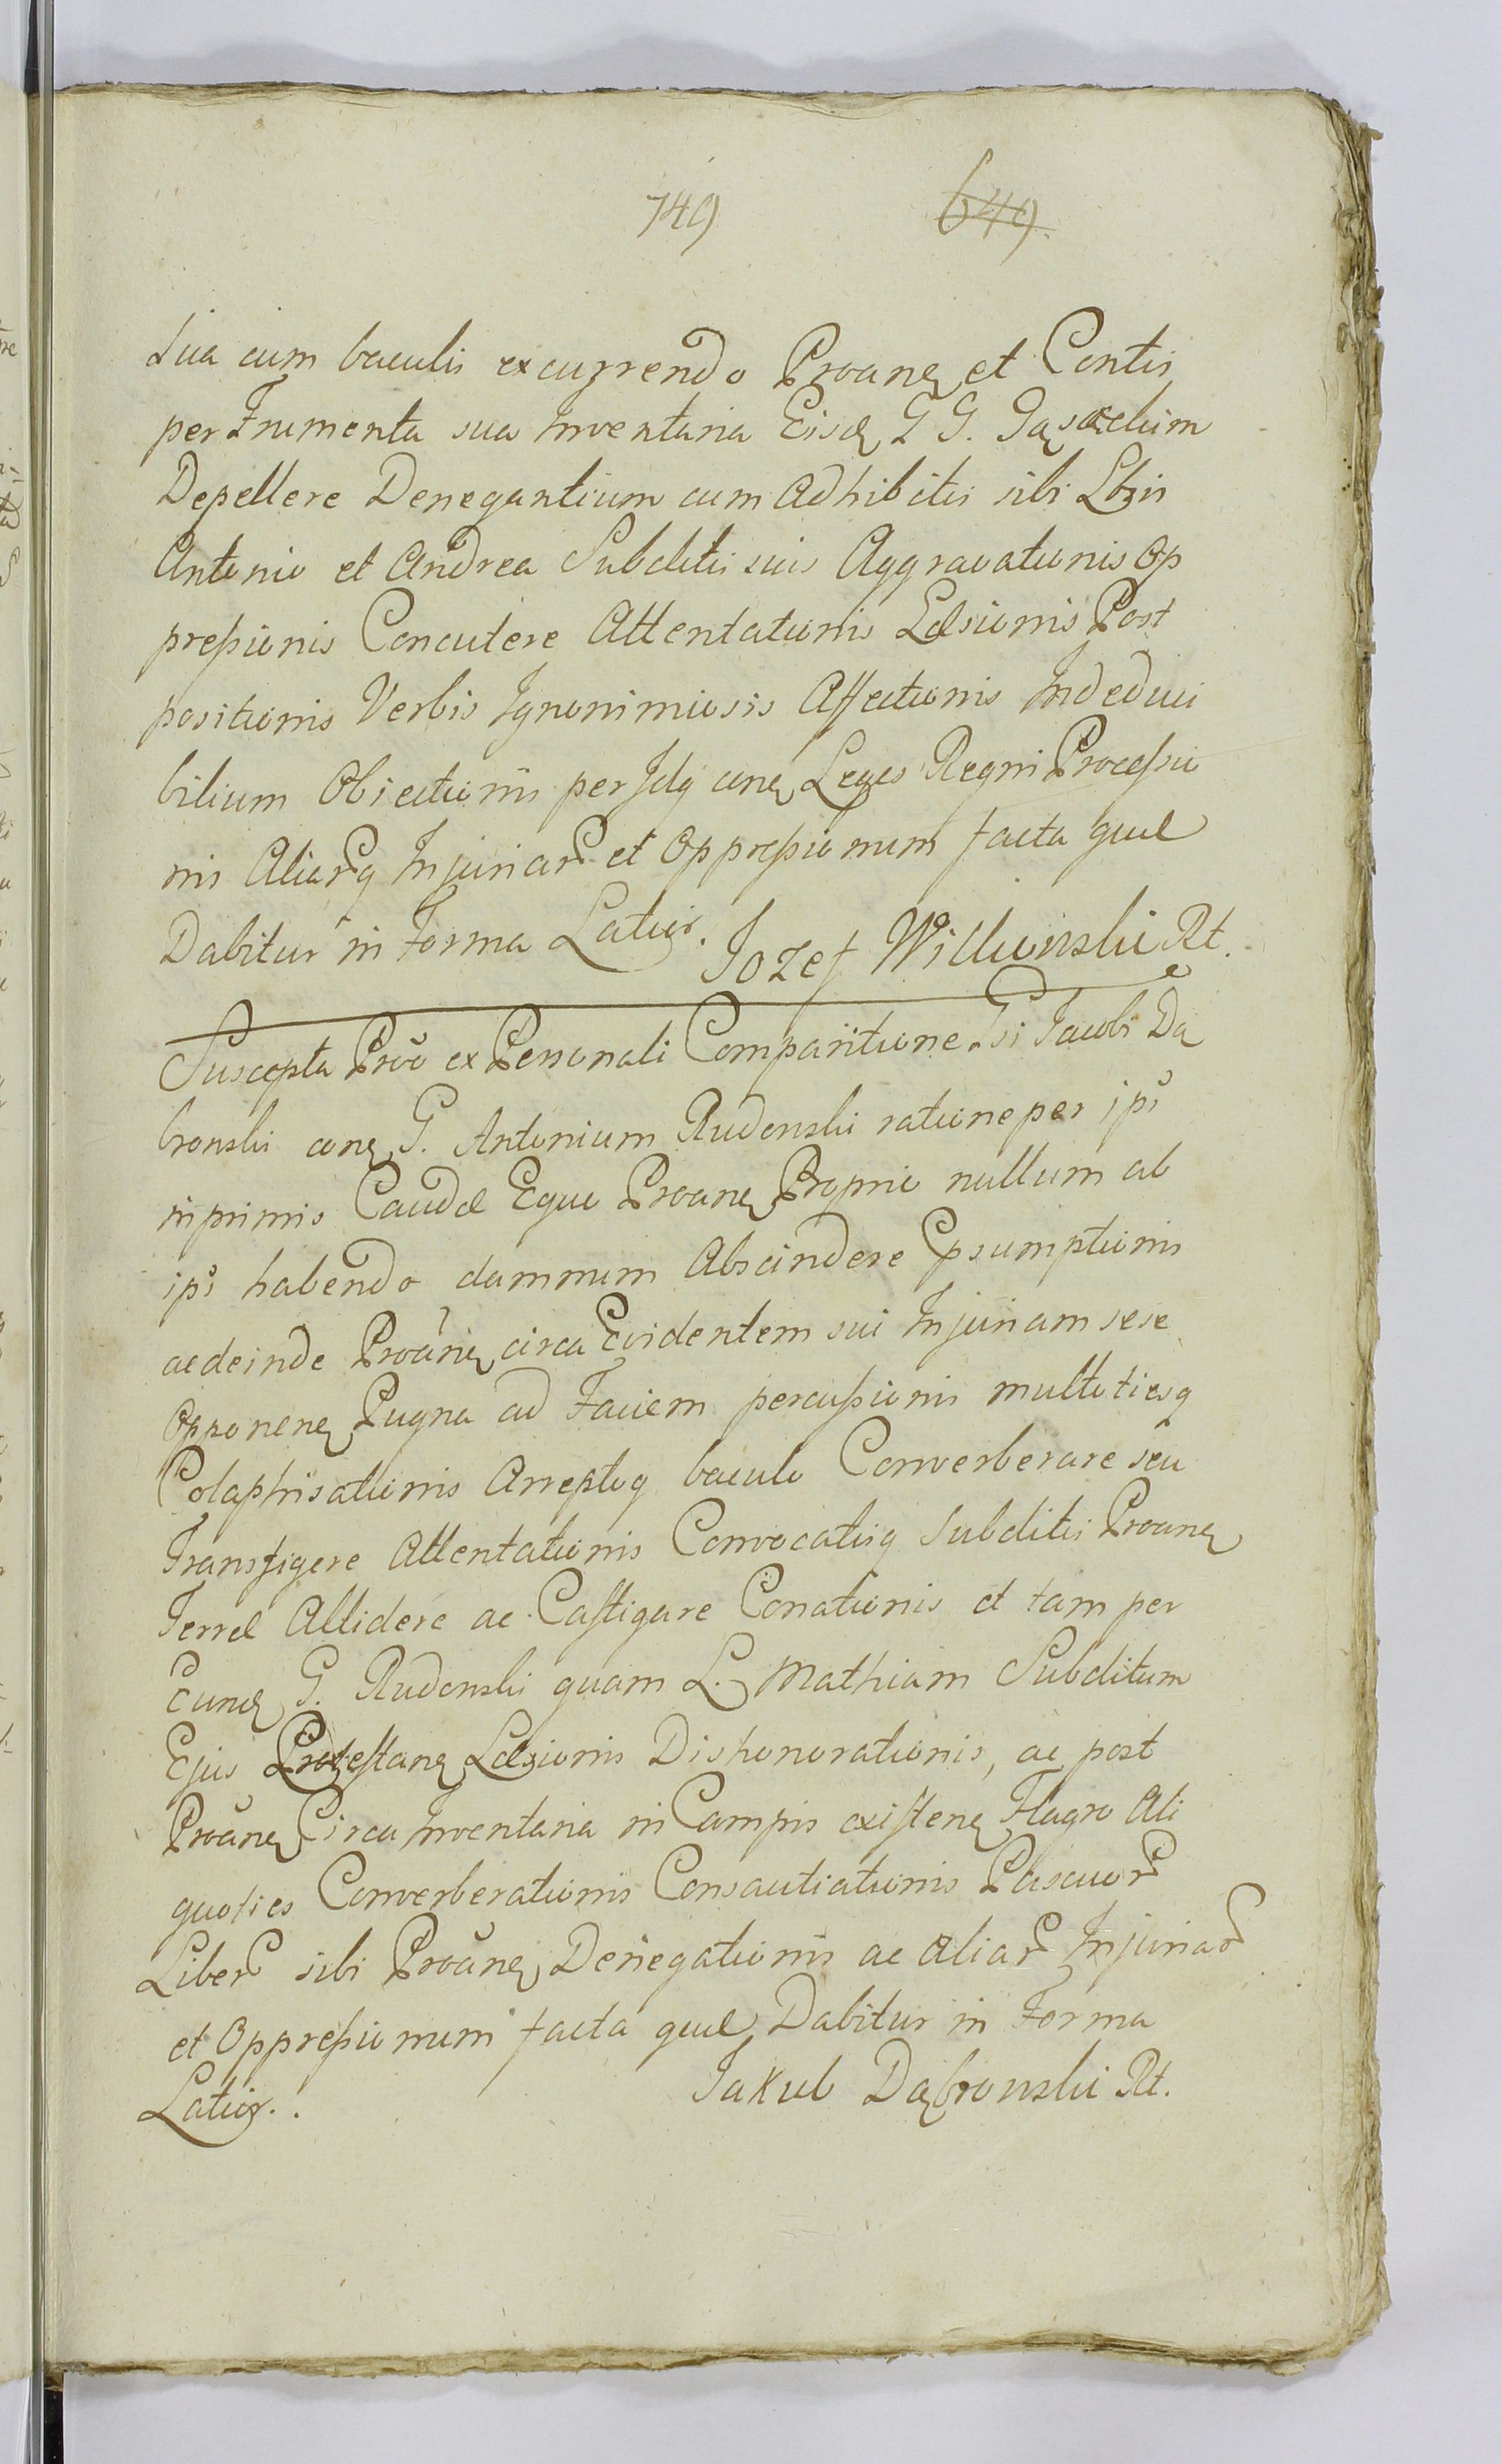 749 649.
sua cum baculis excurrendo Proanę et Contis
per Frumenta sua Inventaria Eisdę G G. Gąsockim
Depellere Denegantium cum Adhibitis sibi Lbris
Antonio et Andrea Subditis suis Aggravationis Op
pressionis Concutere Attentationis Læsionis Post
positionis Verbis Ignonimiosis Affectionis Indedui
bilium Obiectionis per Idq conę Leges Regni Processio
nis Aliarq Injuriar et Oppressionum facta quæ
Dabitur in Forma Latior. Jozef Willionski Rt.
Suscepta Prõo ex Personali Comparitione Gsi Jacobi Dą
bronski conę G. Antonium Rudonski ratione per ipś
inprimis Caudæ Equo Proanę Proprio nullum ab
ipś habendo damnum Abscindere Psumptionis
ac deinde Proãnę circa Evidentem sui Injuriam sese
Opponenę Pugna ad Faciem percussionis multotiesq
Colaphisationis Arreptoq baculo Converberare seu
Transfigere Attentationis Convocatisq Subditis Proanę
Terræ Allidere ac Castigare Conationis et tam per
Eundę G. Rudonski quam L. Mathiam Subditum
Ejus Protestanę Læsionis Dishonorationis, ac post
Proãnę Circa Inventaria in Campis existenę Flagro Ali
quoties Converberationis Consautiationis Pascuor
Liber sibi Proãnę Denegationis ac aliar Injuriar
et Oppressionum facta quæ Dabitur in Forma
Latior. Jakub Dąbronski Rt.